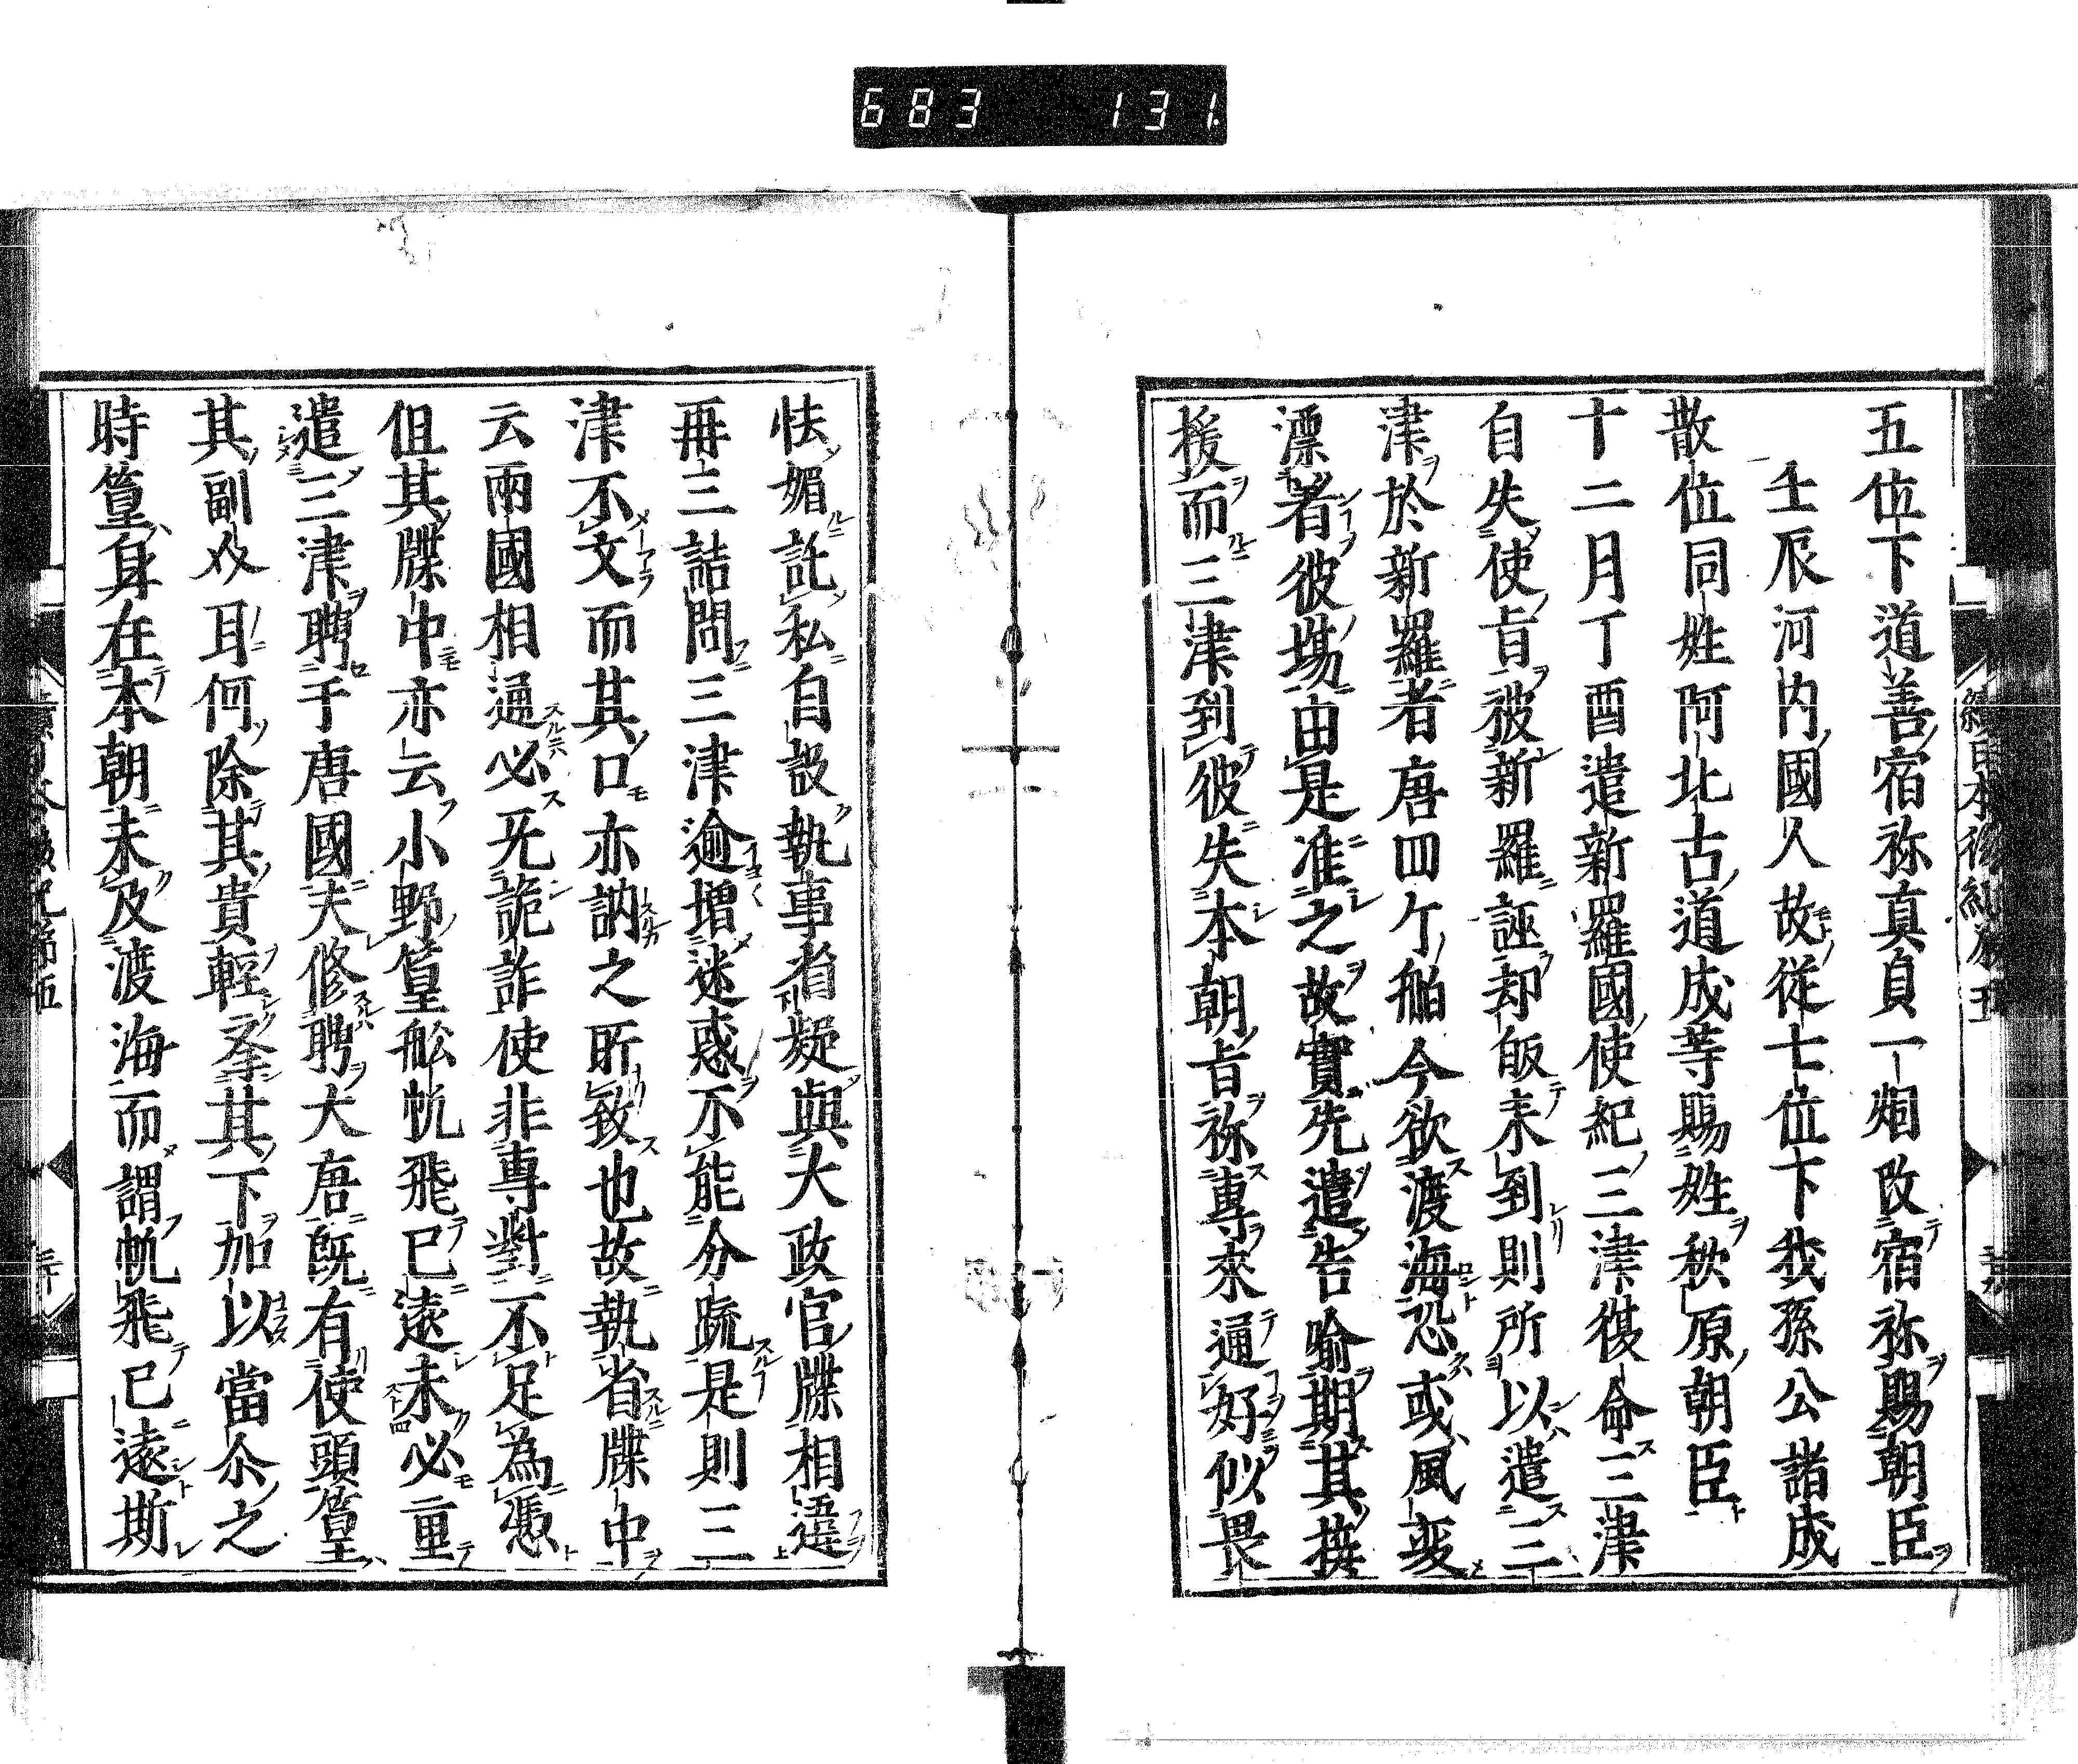 683 131.
五位下道善宿祢真貞一烟改宿祢賜朝臣
壬辰河内國人故従七位下我孫公諸成
散位同姓阿北古道成等賜姓秋原朝臣
十二月丁酉遣新羅國使紀三津復命三津
自失使旨彼新羅誣却皈未到則所以遣三
津於新羅者唐四ケ舶今欲渡海恐或風変
漂着彼境由是准之故實先遣告喻期其
援而三津到彼失本朝旨称專來通好似畏
怯媚託私自設執事者疑與大政官牒相違
再三詰問三津逾増迷惑不能分疏是則三
津不文而其口亦訥之所致也故執省牒中
云兩國相通必无詭詐使非專對不足為憑
但其牒中亦云小野篁舩帆飛已遠未必重
遣三津聘于唐國夫修聘大唐既有使頭篁
其副介耳何除其貴輕挙其下加以當尒之
時篁身在本朝未及渡海而謂帆飛已遠斯